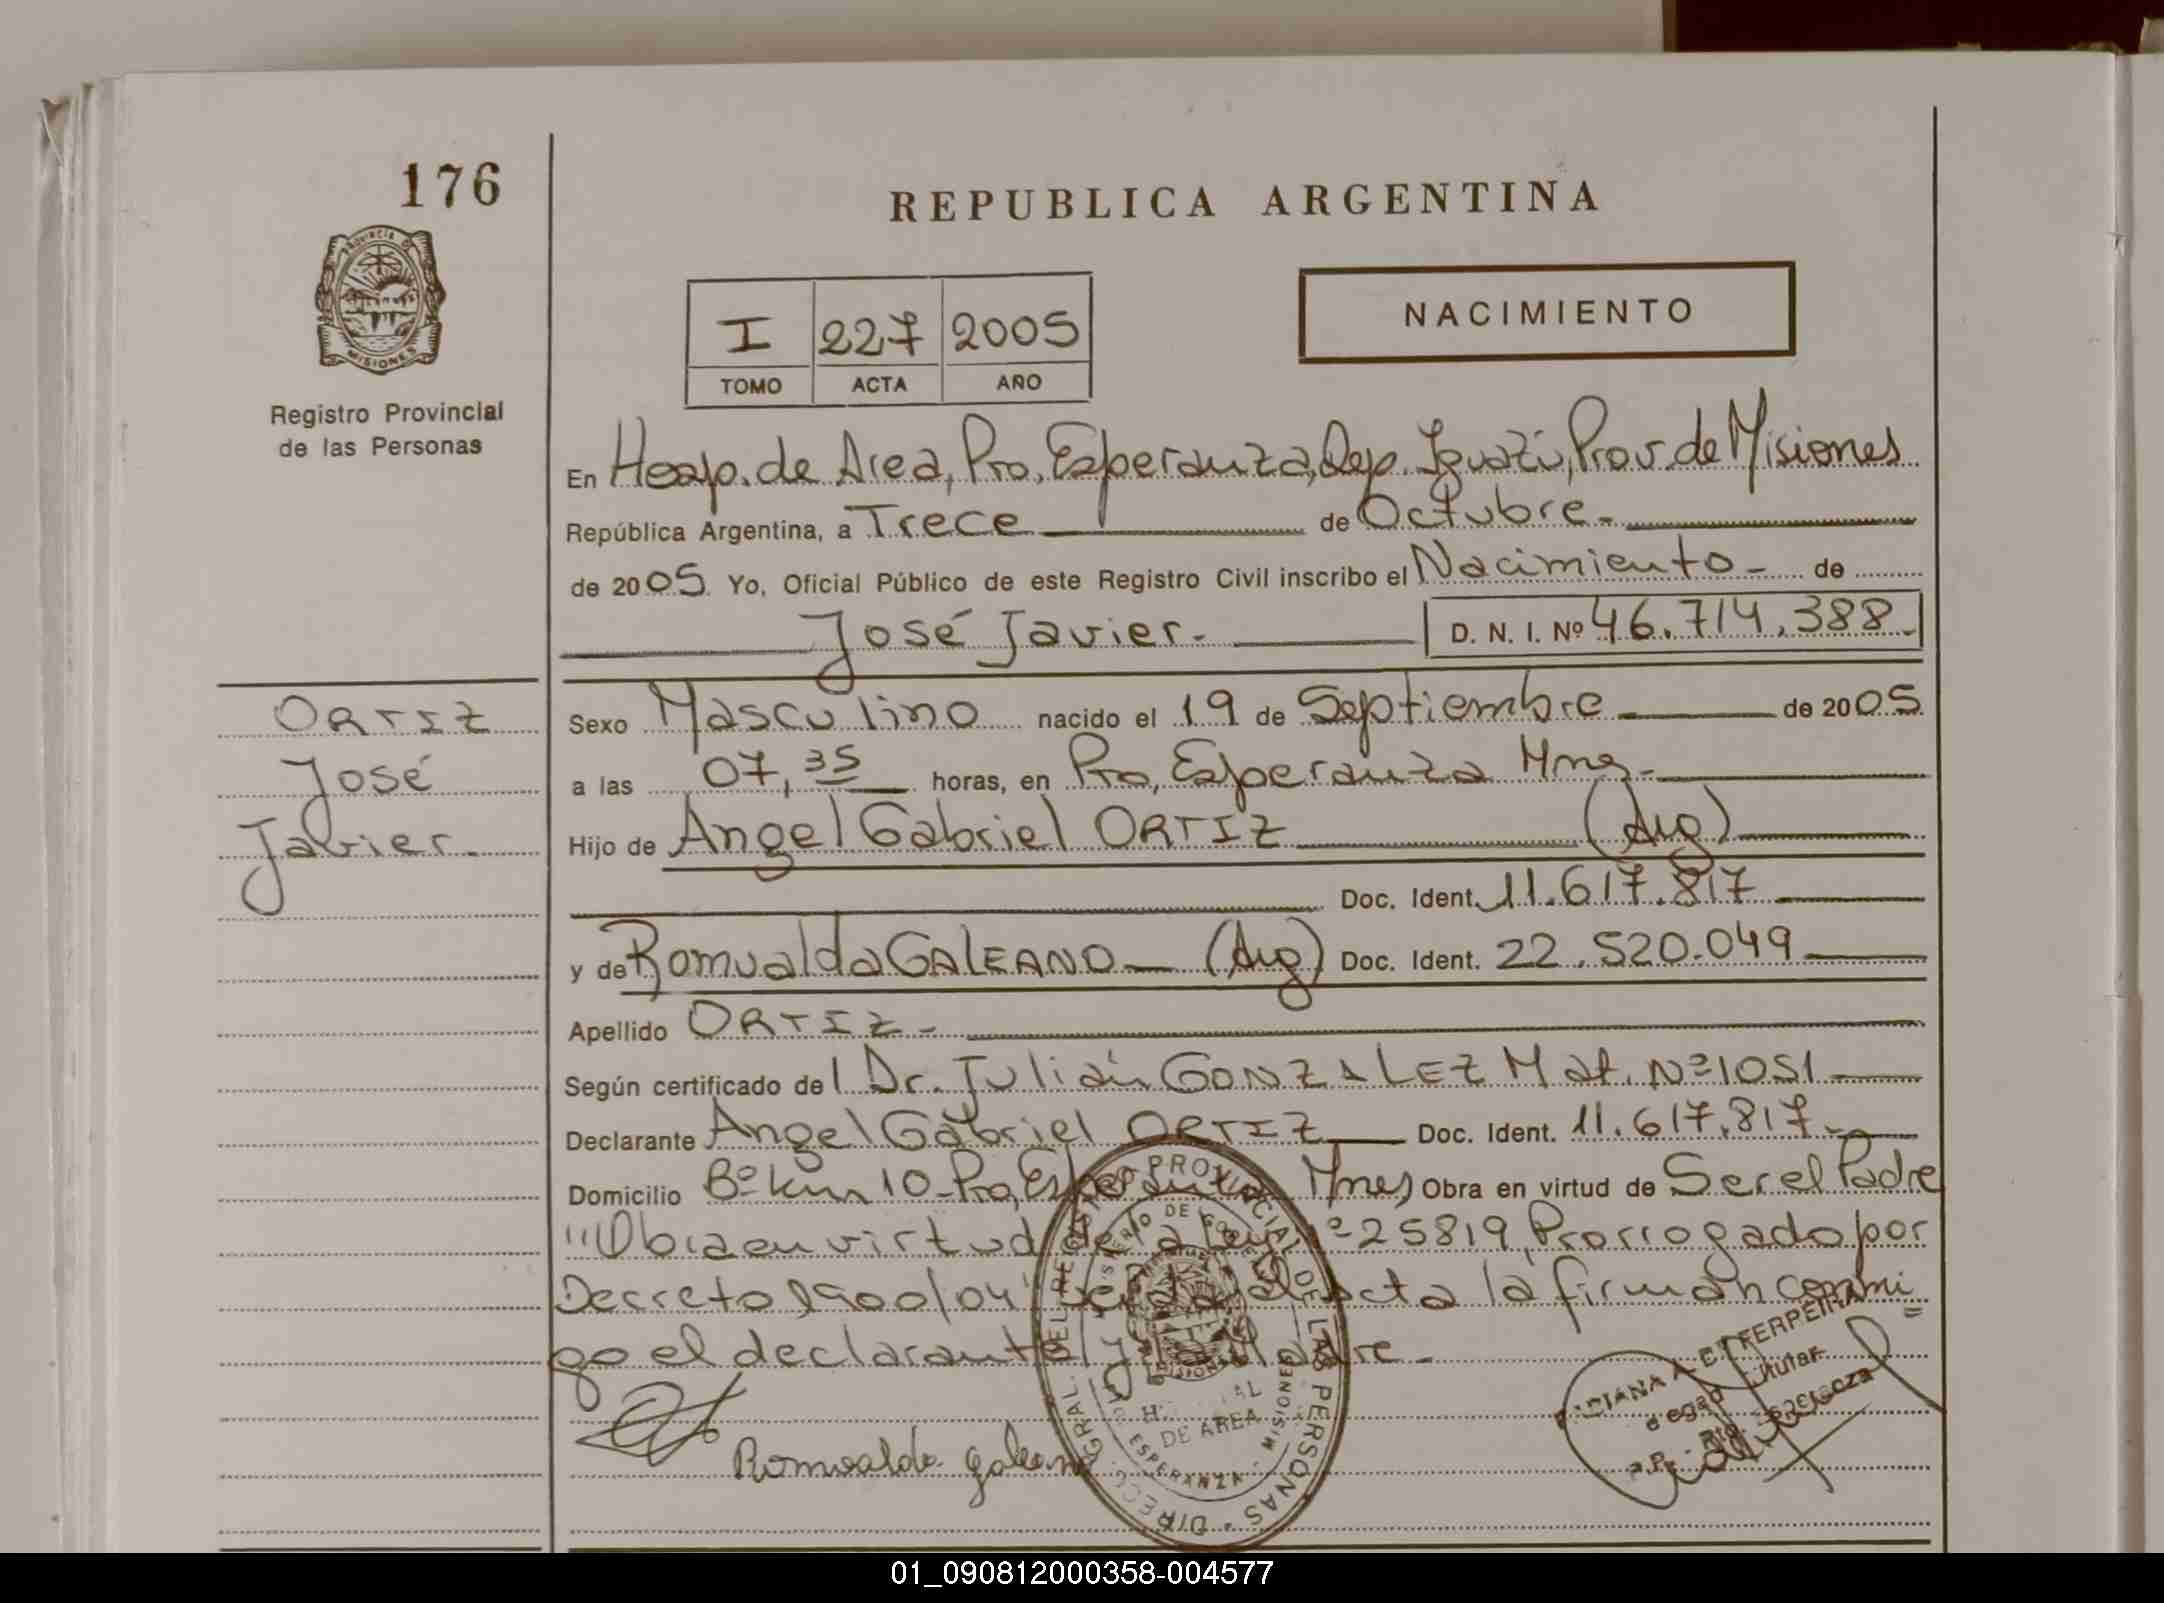 176
REPUBLICA ARGENTINA
PROVINCIA DE
MISIONES
Registro Provincial
de las Personas
I 227 2005
TOMO ACTA AÑO
NACIMIENTO
En Hosp. de Area, Pto. Esperanza, Dep. Iguazú, Prov. de Misiones
República Argentina, a Trece de Octubre.-
de 2005 Yo, Oficial Público de este Registro Civil inscribo el Nacimiento- de
José Javier.- D. N. I. Nº 46.714.388-
ORTIZ
José
Javier.-
Sexo Masculino nacido el 19 de Septiembre de 2005
a las 07,35 horas, en Pto, Esperanza Mnes.-
Hijo de Angel Gabriel ORTIZ (Arg)
Doc. Ident. 11.617.817
y de Romualda GALEANO (Arg) Doc. Ident. 22.520.049
Apellido ORTIZ.-
Según certificado del Dr. Julián GONZALEZ Mat. Nº 1051
Declarante Angel Gabriel ORTIZ Doc. Ident. 11.617.817.-
Domicilio Bº km 10-Pto, Esperanza Mnes, Obra en virtud de Ser el Padre
"Obra en virtud de la ley Nº 25819, Prorrogado por
Decreto 1900/04" acta la firman conmi=
go el declarante y la Madre.-
Romualda galeano
DIRECC. GRAL. DEL REGISTRO PROVINCIAL DE LAS PERSONAS
MINISTERIO DE GOBIERNO
DE AREA
ESPERANZA - MISIONES
FERREIRA
Titular
01_090812000358-004577